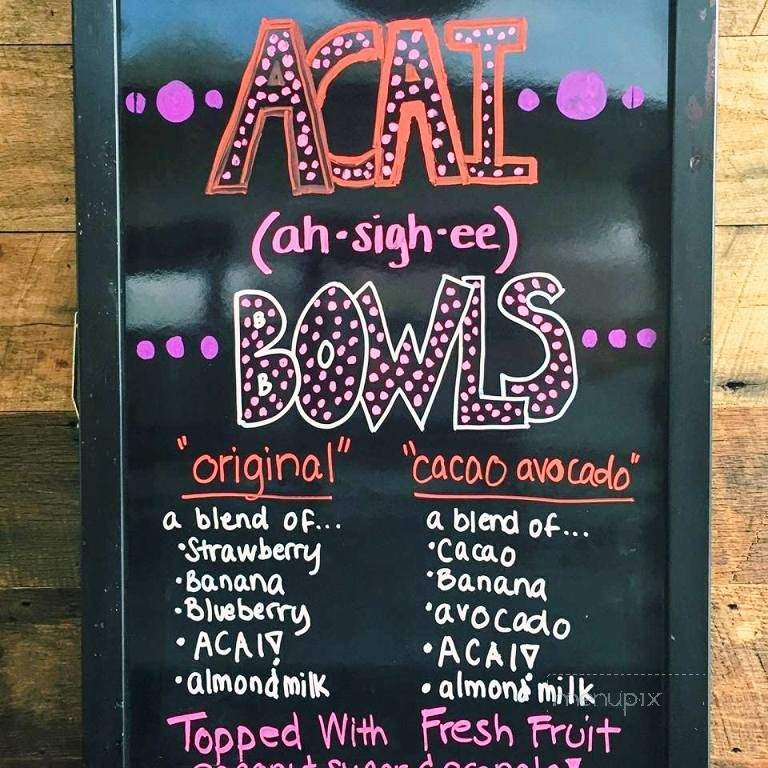 ACAI
(ah-sigh-ee)
BOWLS
B
B
"original"
a blend of...
•Strawberry
•Banana
•Blueberry
•ACAI!
•almond milk
"cacao avocado"
a blend of...
•Cacao
•Banana
•avocado
•ACAI!
•almond milk
Topped With Fresh Fruit
coconut sugar & granola!
menupix